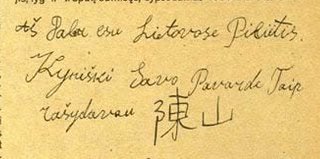 Aš Dabar esu Lietuvose Pilietis.
Kyniški Savo Pavardę Taip
rašydavau 陳山